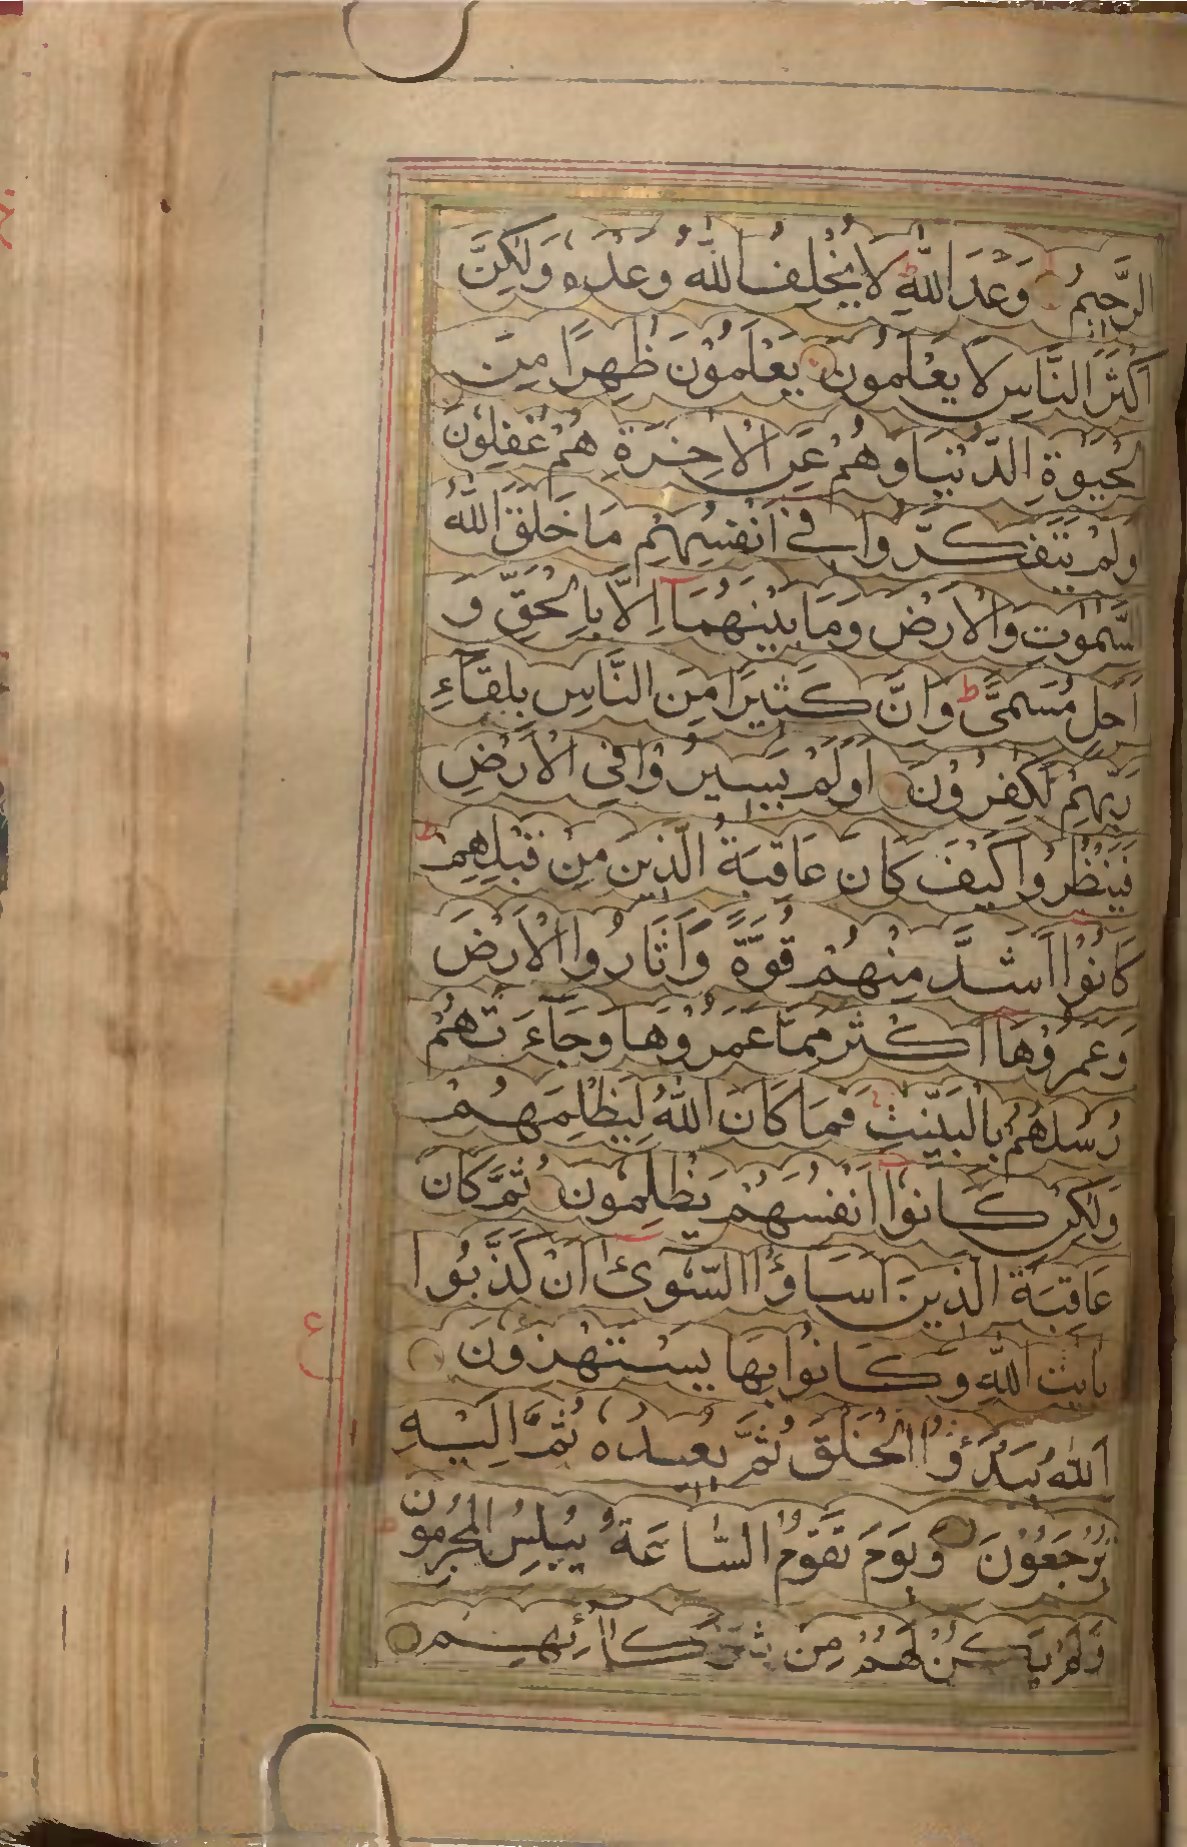 الرَّحِيمُ وَعْدَ اللّٰهِ ط لَا يُخْلِفُ اللّٰهُ وَعْدَهٗ وَلٰكِنَّ
اَكْثَرَ النَّاسِ لَا يَعْلَمُونَ يَعْلَمُوْنَ ظٰهِرًا مِنَ
لْحَيٰوةِ الدُّنْيَا وَهُمْ عَنِ الْاٰخِرَةِ هُمْ غٰفِلُوْنَ
وَلَمْ يَتَفَكَّرُوا فِىْٓ اَنْفُسِهِمْ مَا خَلَقَ اللّٰهُ
لسَّمٰوٰتِ وَالْاَرْضَ وَمَا بَيْنَهُمَآ اِلَّا بِالْحَقِّ وَ
اَجَلٍ مُسَمًّى ط وَاِنَّ كَثِيْرًا مِنَ النَّاسِ بِلِقَآءِ
رَبِّهِمْ لَكٰفِرُوْنَ اَوَلَمْ يَسِيْرُوْا فِى الْاَرْضِ
فَيَنْظُرُوا كَيْفَ كَانَ عَاقِبَةُ الَّذِينَ مِنْ قَبْلِهِمْ ط
كَانُوْٓا اَشَدَّ مِنْهُمْ قُوَّةً وَاَثَارُوا الْاَرْضَ
وَعَمَرُوْهَآ اَكْثَرَ مِمَّا عَمَرُوْهَا وَجَآءَتْهُمْ
رُسُلُهُمْ بِالْبَيِّنٰتِ ط فَمَا كَانَ اللّٰهُ لِيَظْلِمَهُمْ
وَلٰكِنْ كَانُوْٓا اَنْفُسَهُمْ يَظْلِمُونَ ثُمَّ كَانَ
عَاقِبَةَ الَّذِينَ اَسَاۤؤُا السُّوْٓاٰى اَنْ كَذَّبُوْا
بِاٰيٰتِ اللّٰهِ وَكَانُوْا بِهَا يَسْتَهْزِءُوْنَ
ع
اَللّٰهُ يَبْدَؤُا الْخَلْقَ ثُمَّ يُعِيدُهٗ ثُمَّ اِلَيْهِ
تُرْجَعُوْنَ وَيَوْمَ تَقُوْمُ السَّاعَةُ يُبْلِسُ الْمُجْرِمُوْنَ
وَلَمْ يَكُنْ لَهُمْ مِنْ شُرَكَآئِهِمْ